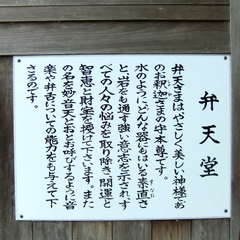 弁天堂
弁天さまはやさしく美しい神様であ
のお釈迦さまの守本尊です。
水のようにどんな姿にもはいる素直さ
と、岩をも通す強い意志を示されす
べての人々の悩みを取り除き、開運と
智恵と財宝を授けて下さいます。また
の名を妙音天とおとお呼びするように音
楽や弁舌についての能力をも与えて下
さるのです。